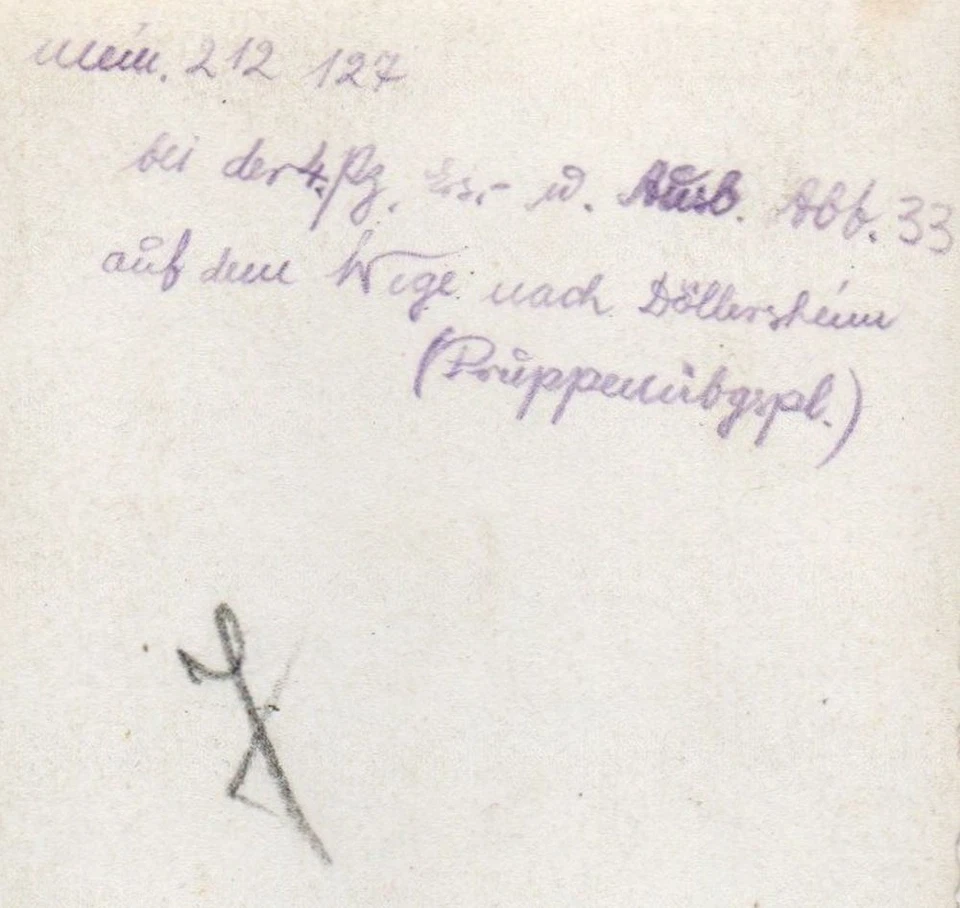 mein. 212 127
bei der 4. Pz. Ers.- u. Ausb. Abt. 33
auf dem Wege nach Döllersheim
(Truppenübgspl.)